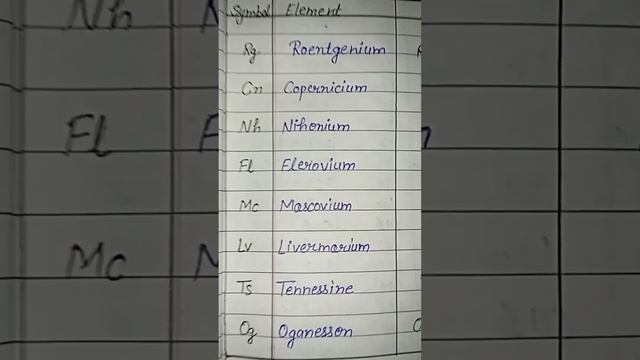 Symbol Element
Rg Roentgenium
Cn Copernicium
Nh Nihonium
Fl Flerovium
Mc Mascovium
Lv Livermarium
Ts Tennessine
Og Oganesson
Nh
Fl
Mc